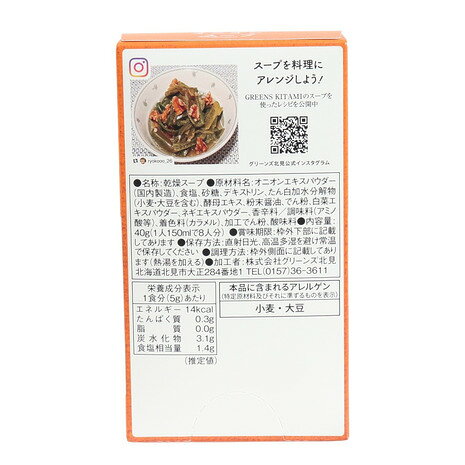 スープを料理に
アレンジしよう!
GREENS KITAMIのスープを
使ったレシピを公開中
グリーンズ北見公式インスタグラム
ryokooo_26
●名称:乾燥スープ ●原材料名:オニオンエキスパウダー
(国内製造)、食塩、砂糖、デキストリン、たん白加水分解物
(小麦・大豆を含む)、酵母エキス、粉末醤油、でん粉、白菜エ
キスパウダー、ネギエキスパウダー、香辛料/調味料(アミノ
酸等)、着色料(カラメル)、加工でん粉、酸味料 ●内容量:
40g(1人150mlで8人分) ●賞味期限:枠外下部に記載
してあります ●保存方法:直射日光、高温多湿を避け常温
で保存してください ●調理方法:枠外側面に記載してあり
ます(熱湯を加える) ●加工者:株式会社グリーンズ北見
北海道北見市大正284番地1 TEL(0157)36-3611
栄養成分表示
1食分(5g)あたり
エネルギー 14kcal
たんぱく質 0.3g
脂質 0.0g
炭水化物 3.1g
食塩相当量 1.4g
(推定値)
本品に含まれるアレルゲン
(特定原材料及びそれに準ずるものを表示)
小麦・大豆